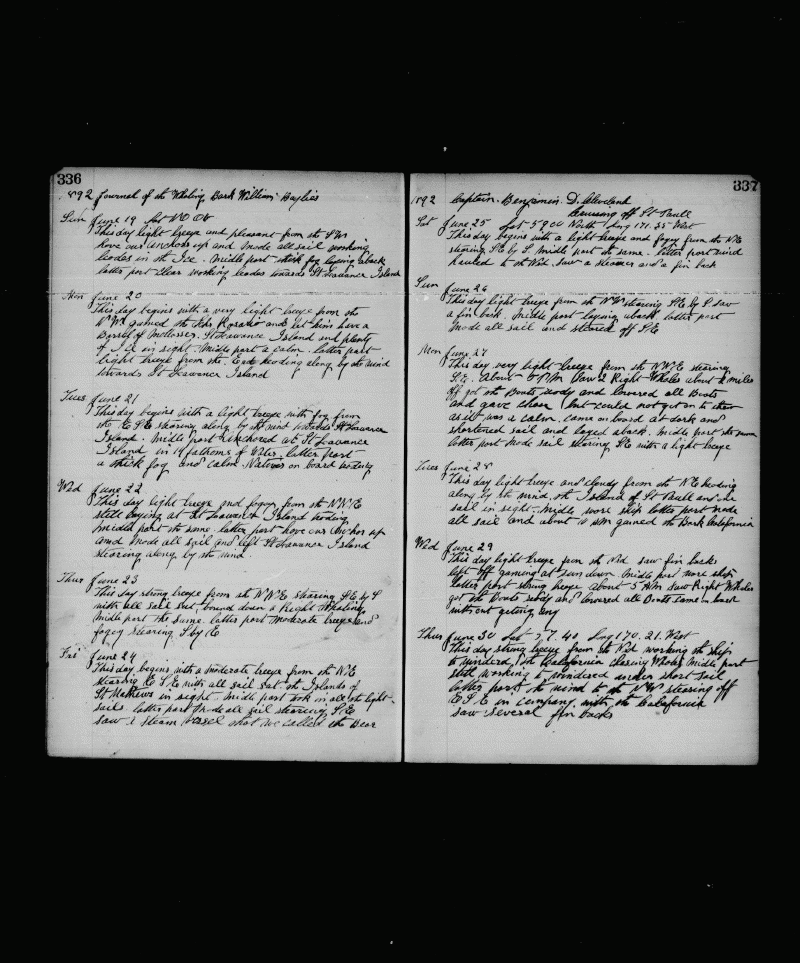 336
1892 Journal of the Whaling Bark William Baylies
Sun June 19 Lat NO OB
This day light breeze and pleasant from the
hove our anchors up and made all sail working
leades in the Ice. Middle part thick fog laying aback
latter part Clear working leades towards St Lawrance Island
Mon June 20
This day begins with a very light breeze from the
gamed the Schr Rosario and let him have a
Barrel of Mollasses. St Lawrance Island and plenty
of Ice in sight. Middle part a calm. latter part
light breeze from the Eard heading along by the wind
towards St Lawrance Island
Tues June 21
This day begins with a light breeze with fog from
the ESE stearing along by the wind towards St Lawrance
Island. Middle part Anchored at St Lawrance
Island in 19 fathoms of Water. latter part
a thick fog and calm. Natives on board trading
Wed June 22
This day light breeze and foggy from the NNE
still laying at St Lawrance Island trading
middle part the same. latter part hove our Anchor up
and Made all sail and left St Lawrance Island
stearing along by the wind.
Thur June 23
This day strong breeze from the NNE stearing SE by S
with all sail set, bound down a Right Whaling
Middle part the same. latter part moderate breeze and
foggy stearing S by E
Fri June 24
This day begins with a moderate breeze from the NE
stearing ESE with all sail set. the Islands of
St Mathews in sight. Middle part took in all the light
sails latter part Made all sail stearing SE
saw a steam vessel what we called the Bear
337
1892 Captain. Benjamin. D. Cleveland
Cruising off St Paull
Sat June 25 Lat 59 00 North Long 171.35 West
This day begins with a light breeze and fogey from the NE
stearing SE by S. Middle part the same. latter part wind
hauled to the Nd. Saw a steamer and a fin back
Sun June 26
This day light breeze from the NW stearing SE by S. saw
a fin back. Middle part laying aback latter part
Made all sail and steared off SE
Mon June 27
This day very light breeze from the NWE stearing
SE. About PM Saw 2 Right Whales about miles
off got the Boats ready and lowered all Boats
and gave chase but could not get on to them
as it was a calm. Came on board at dark and
shortened sail and layed aback. Middle part the same
latter part Made sail stearing SE with a light breeze
Tues June 28
This day light breeze and cloudy from the NE heading
along by the wind, the Island of St Paull and one
sail in sight. Middle wore ship latter part made
all sail and about AM gamed the Bark California
Wed June 29
This day light breeze from the Nd saw fin backs
left off gaming at Sun down Middle part wore ship
latter part strong breeze about 5 AM saw Right Whales
got the Boats ready and lowered all Boats came on board
without getting any
Thus June 30 Lat 57.40, Long 170.21. West
This day strong breeze from the Nd working the ship
to windard, the California chasing Whales Middle part
still working to windard under short sail
latter part the wind to the NW stearing off
ESE in company with the California
saw several fin backs